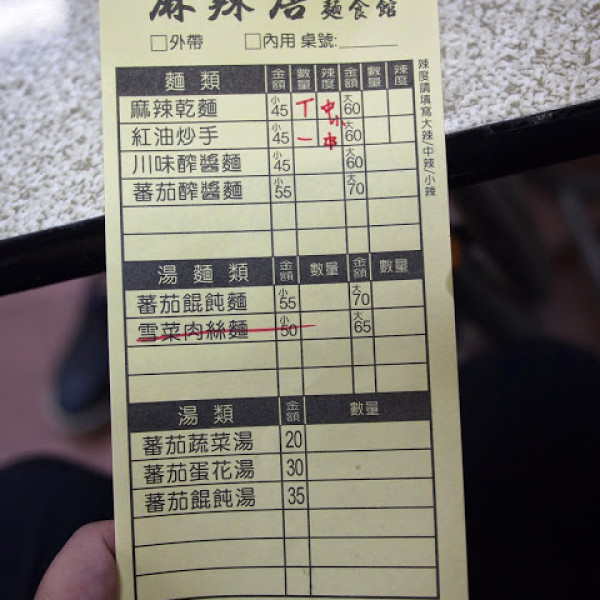 麻辣 麵食館
□外帶 □內用 桌號:______
麵類 金額 數量 辣度 金額 數量 辣度
麻辣乾麵 小45 丅 中 大60
紅油炒手 小45 一 小中 大60
川味醡醬麵 小45 大60
蕃茄醡醬麵 小55 大70
辣度請填寫大辣/中辣/小辣
湯麵類 金額 數量 金額 數量
蕃茄餛飩麵 小55 大70
雪菜肉絲麵 小50 大65
湯類 金額 數量
蕃茄蔬菜湯 20
蕃茄蛋花湯 30
蕃茄餛飩湯 35